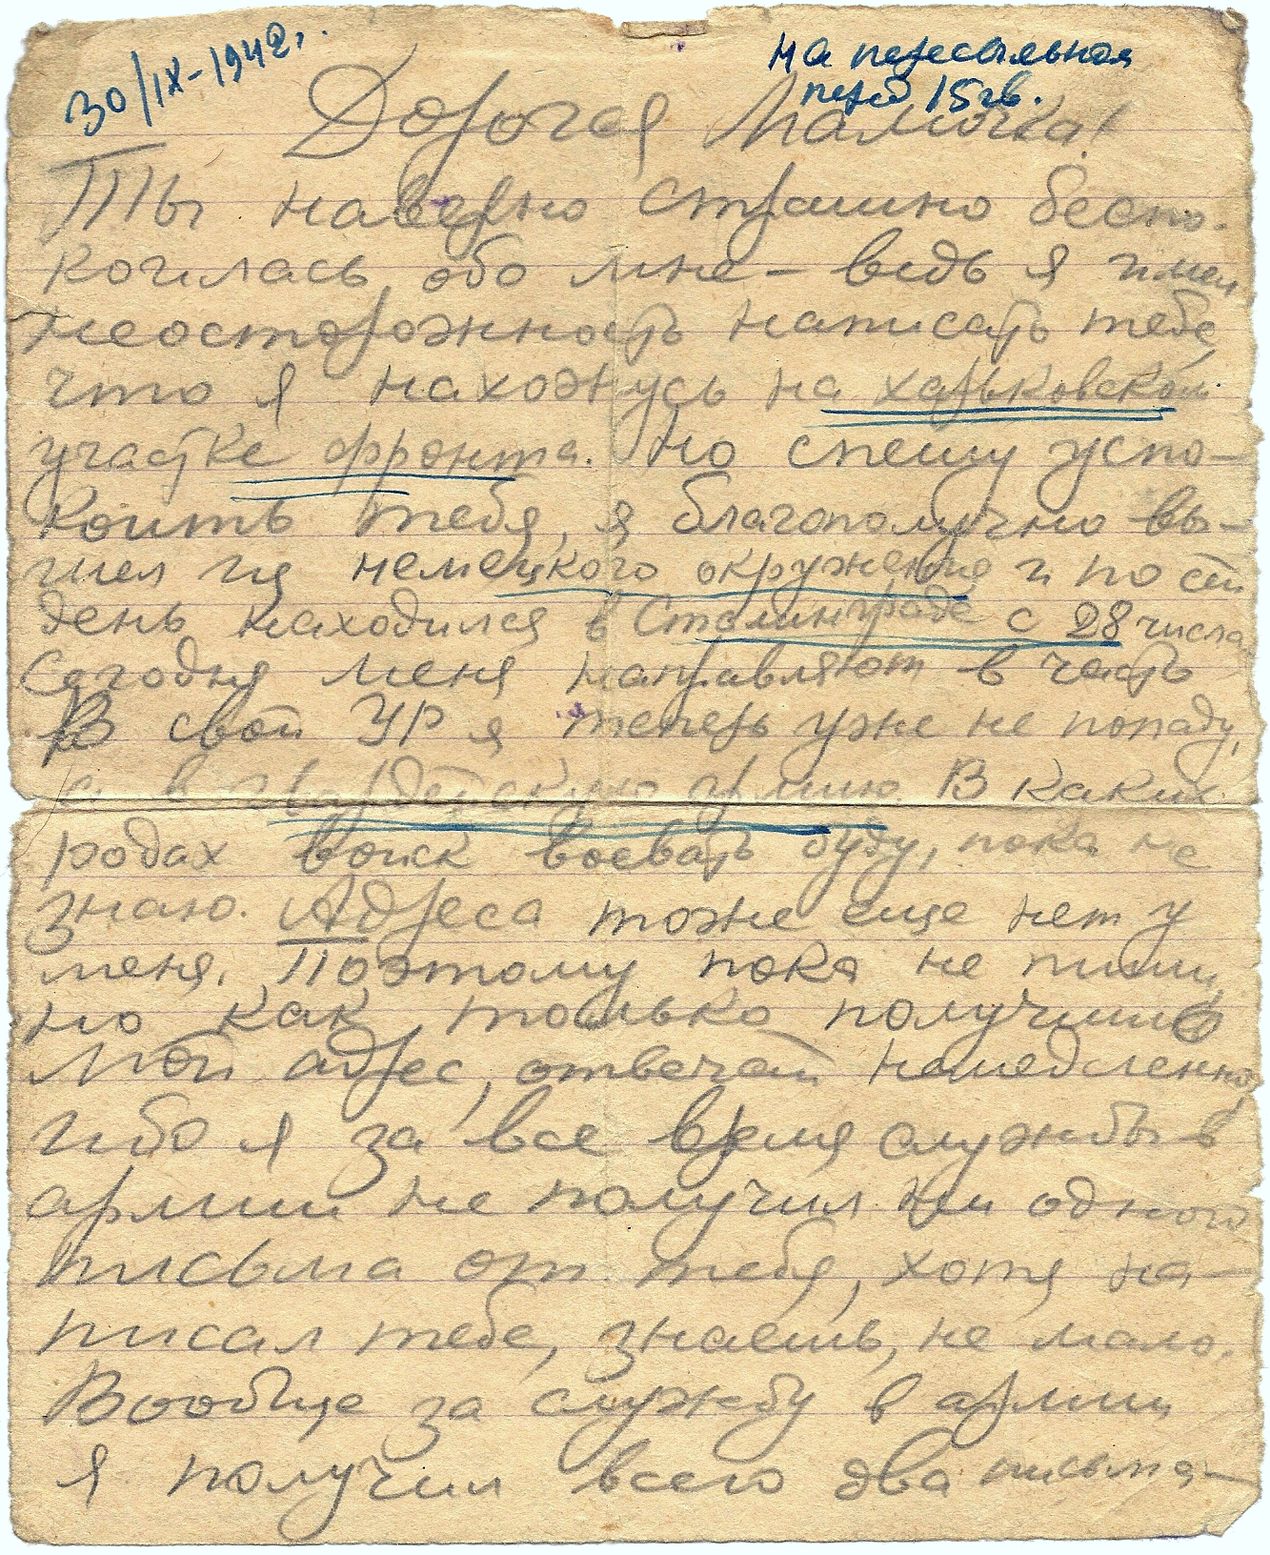 30/IX-1942г.
на пересыльная
перед 15 гв.
Дорогая Мамочка!
Ты наверно страшно беспо-
коилась обо мне – ведь я имел
неосторожность написать тебе,
что я нахожусь на харьковском
участке фронта. Но спешу успо-
коить тебя, я благополучно вы-
шел из немецкого окружения и по сей
день находился в Сталинграде с 28 числа
Сегодня меня направляют в часть
В свой УР я теперь уже не попаду,
а в гвардейскую армию. В каких
родах войск воевать буду, пока не
знаю. Адреса тоже еще нет у
меня. Поэтому пока не пиши,
но как только получишь
мой адрес, отвечай немедленно,
ибо я за все время службы в
армии не получил ни одного
письма от тебя, хотя на-
писал тебе, знаешь, не мало.
Вообще за службу в армии
я получил всего два письма –